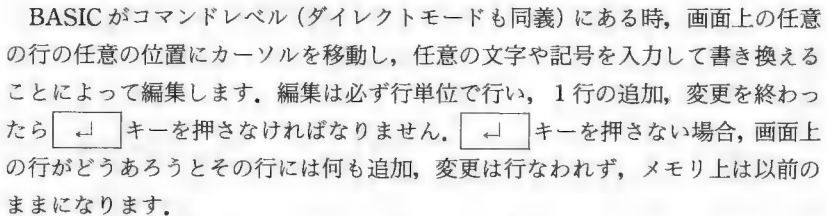 BASICがコマンドレベル（ダイレクトモードも同義）にある時，画面上の任意
の行の任意の位置にカーソルを移動し，任意の文字や記号を入力して書き換える
ことによって編集します．編集は必ず行単位で行い，1行の追加，変更を終わっ
たら ↵ キーを押さなければなりません． ↵ キーを押さない場合，画面上
の行がどうあろうとその行には何も追加，変更は行なわれず，メモリ上は以前の
ままになります．